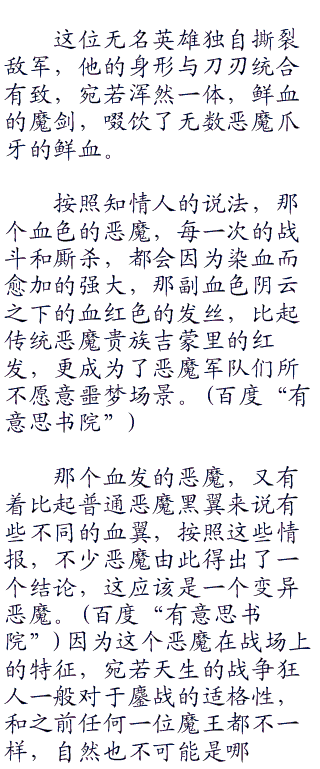 这位无名英雄独自撕裂
敌军，他的身形与刀刃统合
有致，宛若浑然一体，鲜血
的魔剑，啜饮了无数恶魔爪
牙的鲜血。
按照知情人的说法，那
个血色的恶魔，每一次的战
斗和厮杀，都会因为染血而
愈加的强大，那副血色阴云
之下的血红色的发丝，比起
传统恶魔贵族吉蒙里的红
发，更成为了恶魔军队们所
不愿意噩梦场景。（百度“有
意思书院”）
那个血发的恶魔，又有
着比起普通恶魔黑翼来说有
些不同的血翼，按照这些情
报，不少恶魔由此得出了一
个结论，这应该是一个变异
恶魔。（百度“有意思书
院”）因为这个恶魔在战场上
的特征，宛若天生的战争狂
人一般对于鏖战的适格性，
和之前任何一位魔王都不一
样，自然也不可能是哪